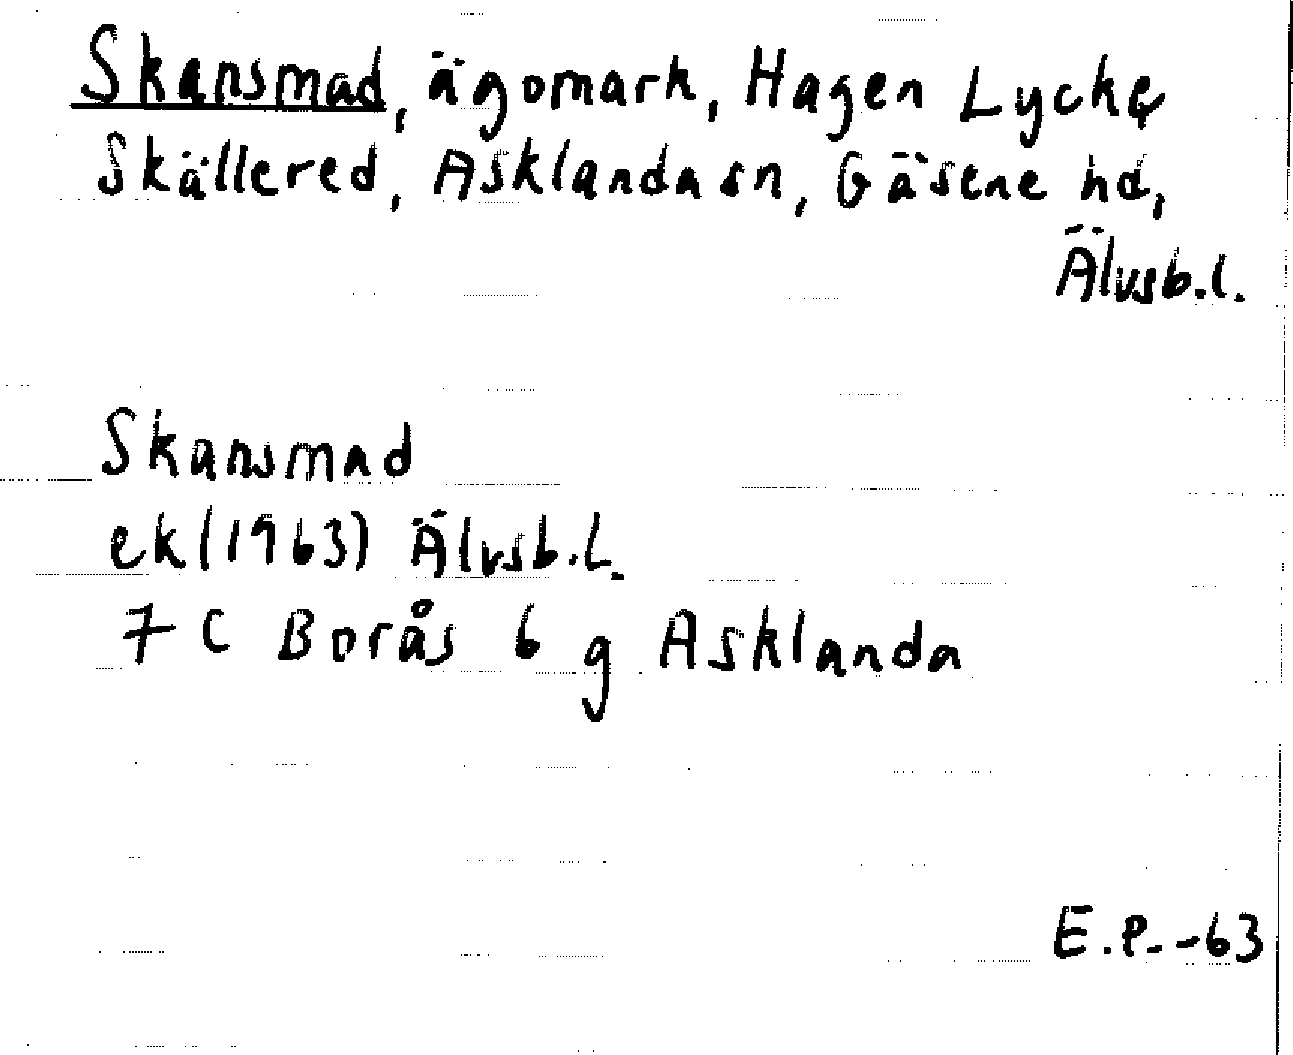 Skansmad, ägomark, Hagen Lycke
Skällered, Asklanda sn, Gäsene hd,
Älvsb.l.
Skansmad
ek (1963) Älvsb.l.
7 C Borås 6 g Asklanda
E.P. -63